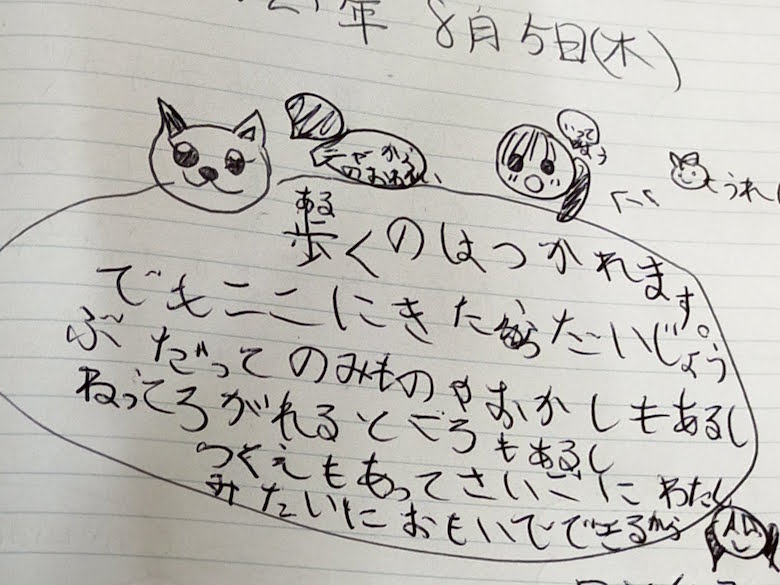 年 8月5日(木)
いって
うれし
ある
歩くのはつかれます。
でもここにきたからだいじょう
ぶ だってのみものやおかしもあるし
ねっころがれるところもあるし
つくえもあってさいごに わたし
みたいにおもいでできるから